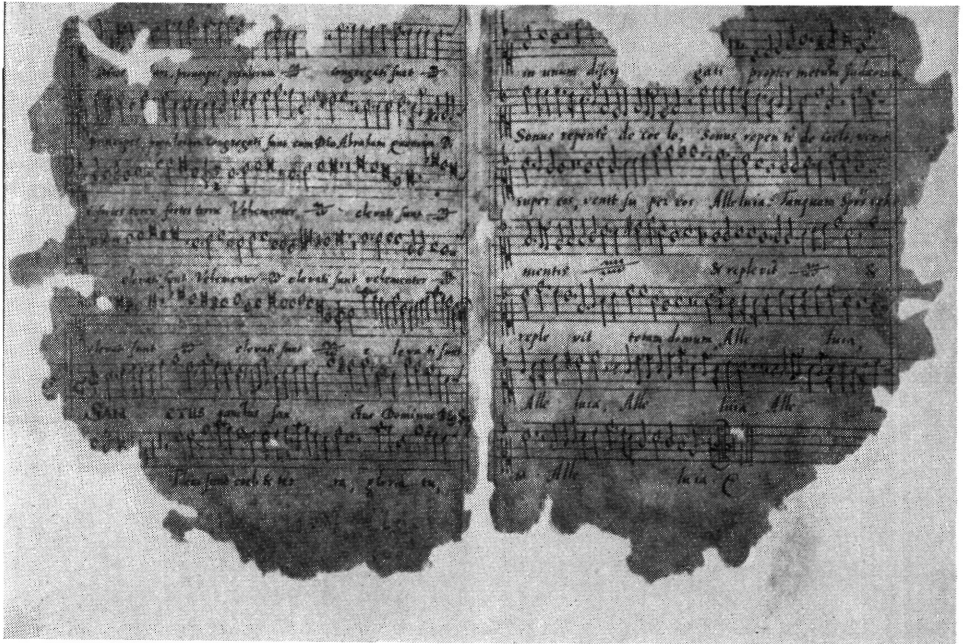 principes populorum congregati sunt
principes populorum congregati sunt cum Deo Abraham quoniam Dii
fortes terre fortes terre Vehementer elevati sunt
elevati sunt Vehementer elevati sunt vehementer
elevati sunt elevati sunt elevati sunt
SAN CTUS sanctus san ctus Dominus
Pleni sunt coeli & ter ra, gloria tu,
in unum discip gati propter metum Judeorum,
Sonus repentè de coe lo, Sonus repen tè de coelo, venit
super eos, venit su per eos Alleluia: Tanquam
mentis & replevit &
reple vit totam domum, Alle luia,
Alle luia, Alle luia, Alle
ia Alle luia